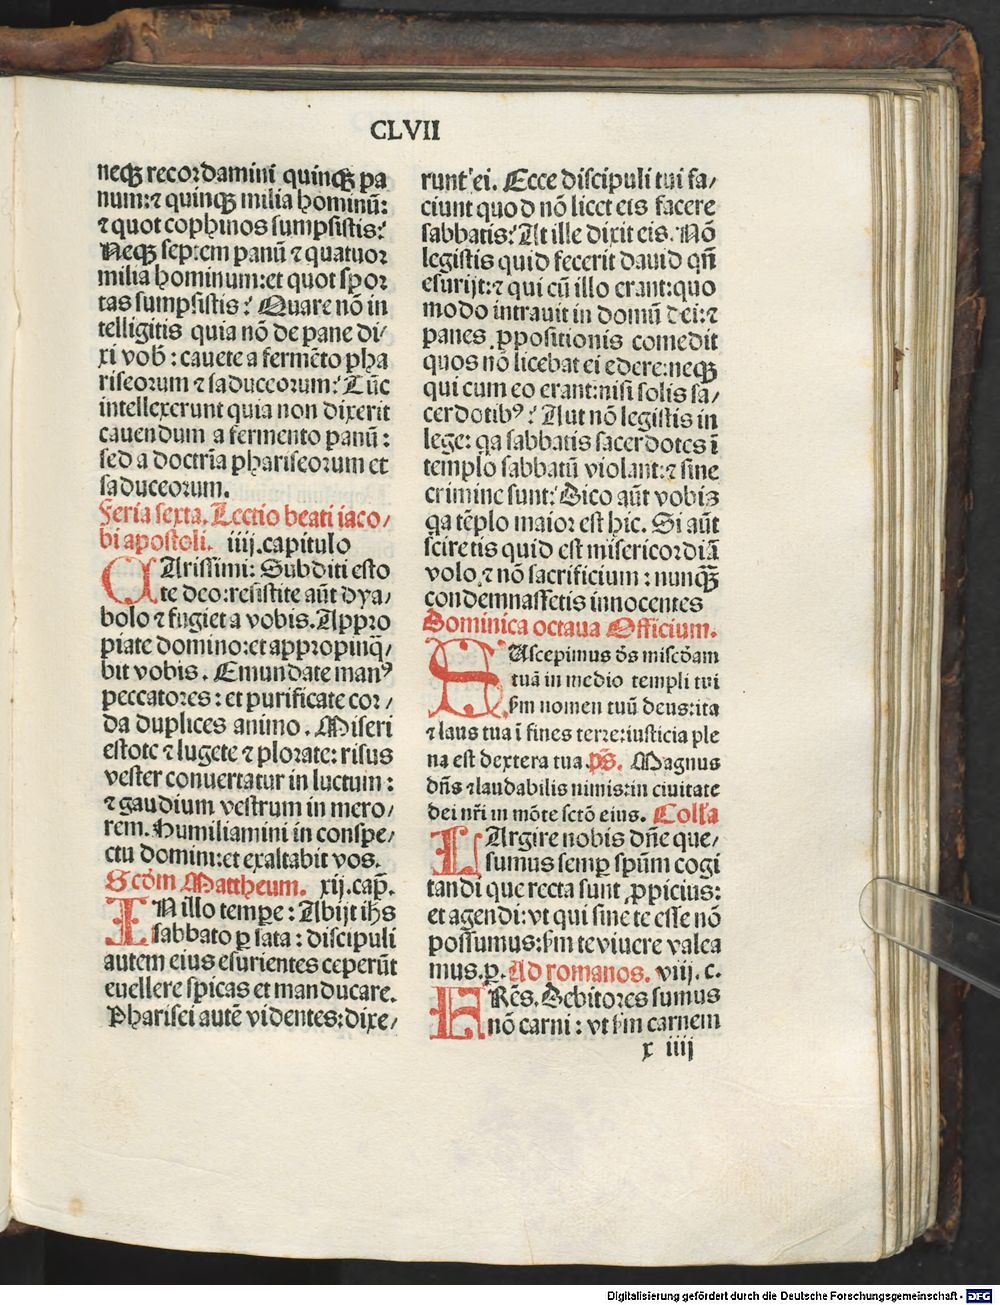 CLVII
neqꝫ recordamini quinqꝫ pa
num:⁊ quinqꝫ milia hominū:
⁊ quot cophinos sumpsistis?
Neqꝫ septem panū ⁊ quatuor
milia hominum:et quot spor
tas sumpsistis? Quare nō in
telligitis quia nō de pane di/
xi vob̄: cauete a fermēto pha
riseorum ⁊ saduceorum? Tūc
intellexerunt quia non dixerit
cauendum a fermento panū:
sed a doctrīa phariseorum et
saduceorum.
Feria sexta. Lectio beati iaco/
bi apostoli. iiij.capitulo
CArissimi: Subditi esto
te deo:resistite aūt dya/
bolo ⁊ fugiet a vobis. Appro
piate domino:et appropinq̄/
bit vobis. Emundate manꝰ
peccatores: et purificate cor/
da duplices animo. Miseri
estote ⁊ lugete ⁊ plorate: risus
vester conuertatur in luctum:
⁊ gaudium vestrum in mero/
rem. Humiliamini in conspe/
ctu domini:et exaltabit vos.
Scd̄m Mattheum. xij.cap̄.
IN illo tempe: Abijt ih̄s
sabbato ꝑ sata: discipuli
autem eius esurientes ceperūt
euellere spicas et manducare.
Pharisei autē videntes:dixe/
runt ei. Ecce discipuli tui fa/
ciunt quod nō licet eis facere
sabbatis? At ille dixit eis. Nō
legistis quid fecerit dauid qn̄
esurijt:⁊ qui cū illo erant:quo
modo intrauit in domū dei:⁊
panes ꝓpositionis comedit
quos nō licebat ei edere:neqꝫ
qui cum eo erant:nisi solis sa/
cerdotibꝰ? Aut nō legistis in
lege: qa sabbatis sacerdotes ī
templo sabbatū violant:⁊ sine
crimine sunt? Dico aūt vobis
qa tēplo maior est hic. Si aūt
sciretis quid est misericordiā
volo ⁊ nō sacrificium: nunqꝫ̄
condemnassetis innocentes
Dominica octaua Officium.
SUscepimus ds̄ misc̄dam
tuā in medio templi tui
sm̄ nomen tuū deus:ita
⁊ laus tua ī fines terre:iusticia ple
na est dextera tua. ps̄. Magnus
dn̄s ⁊ laudabilis nimis:in ciuitate
dei nr̄i in mōte sctō eius. Coll'a
LArgire nobis dn̄e que/
sumus semꝑ spūm cogi
tandi que recta sunt ꝓpicius:
et agendi: vt qui sine te esse nō
possumus:sm̄ te viuere valea
mus.ꝑ. Ad romanos. viij. c.
FRēs. Debitores sumus
nō carni: vt sm̄ carnem
x iiij
Digitalisierung gefördert durch die Deutsche Forschungsgemeinschaft - DFG